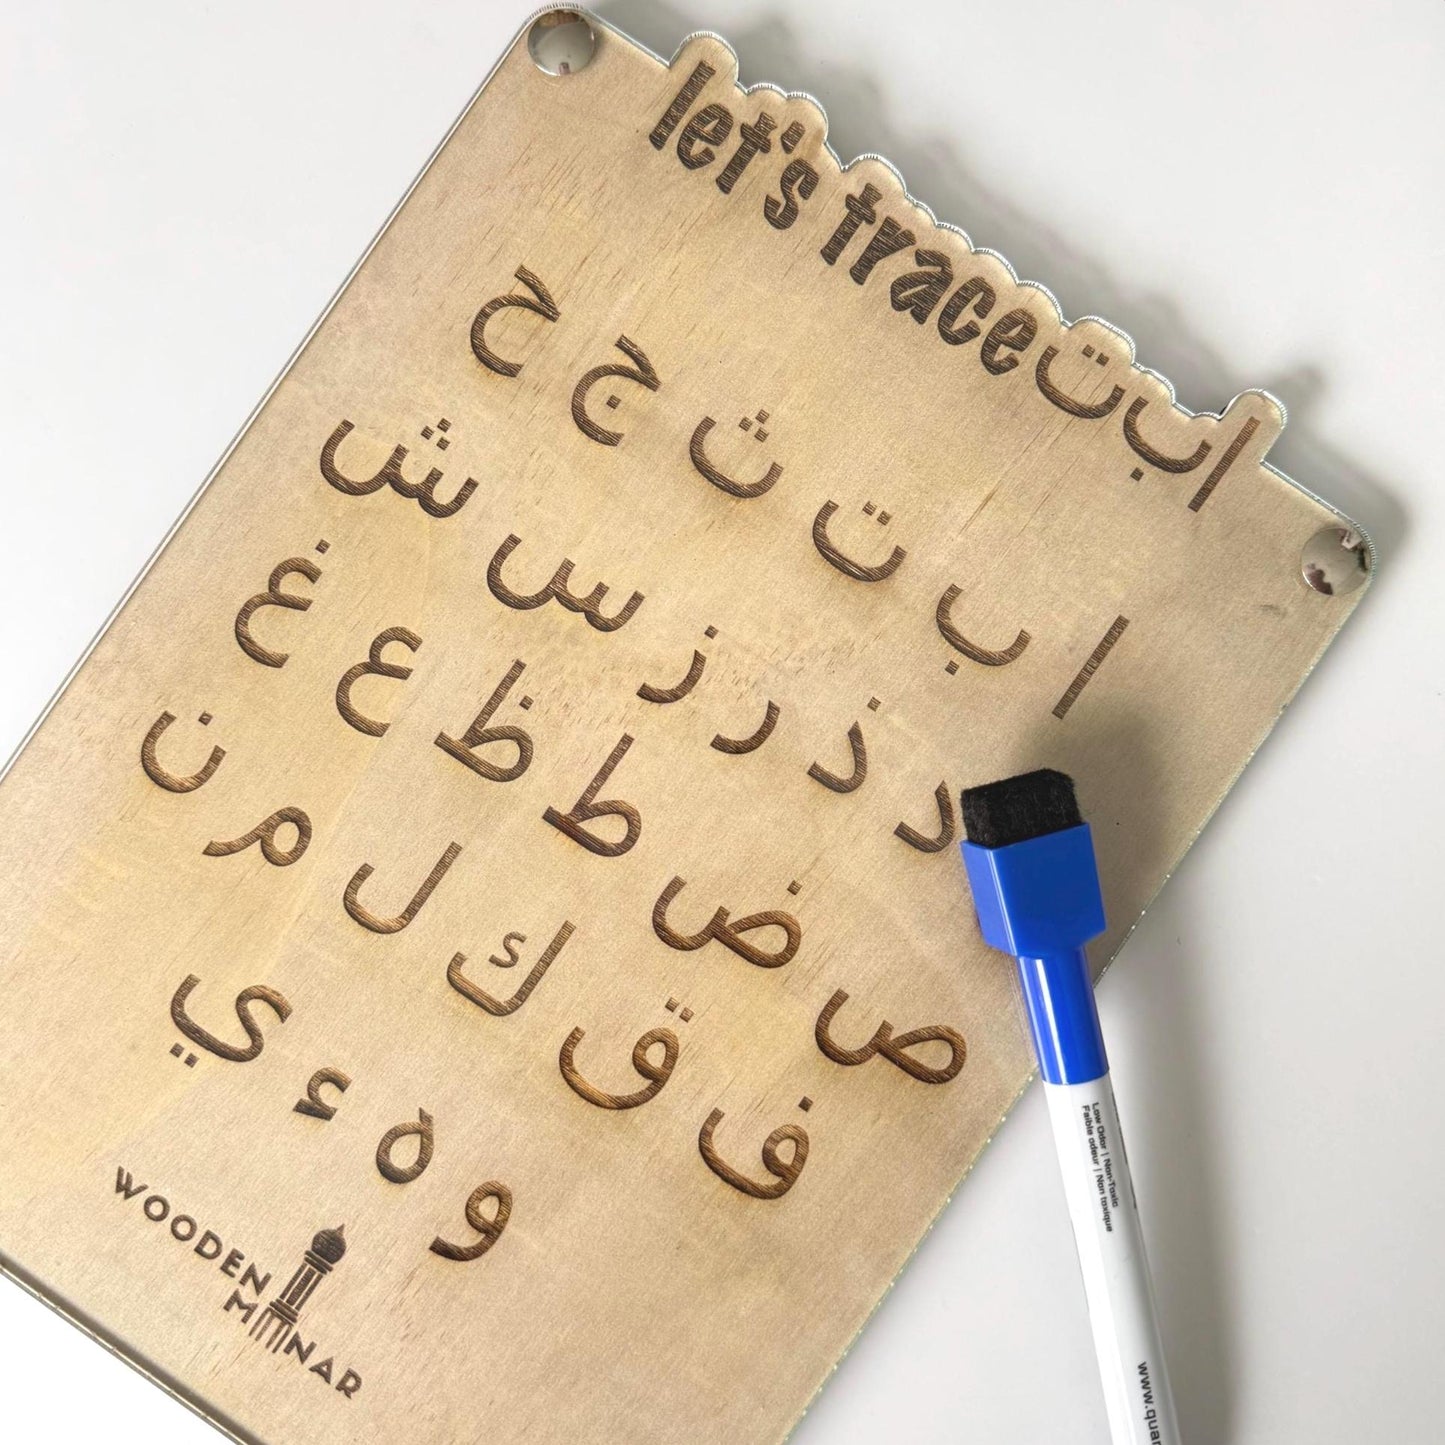 let's trace ا ب ت
ا ب ت ث ج ح
د ذ ر ز س ش
ص ض ط ظ ع غ
ف ق ك ل م ن
و ه ء ي
WOODEN
MINAR
Low Odor | Non-Toxic
Faible odeur | Non toxique
www.quar